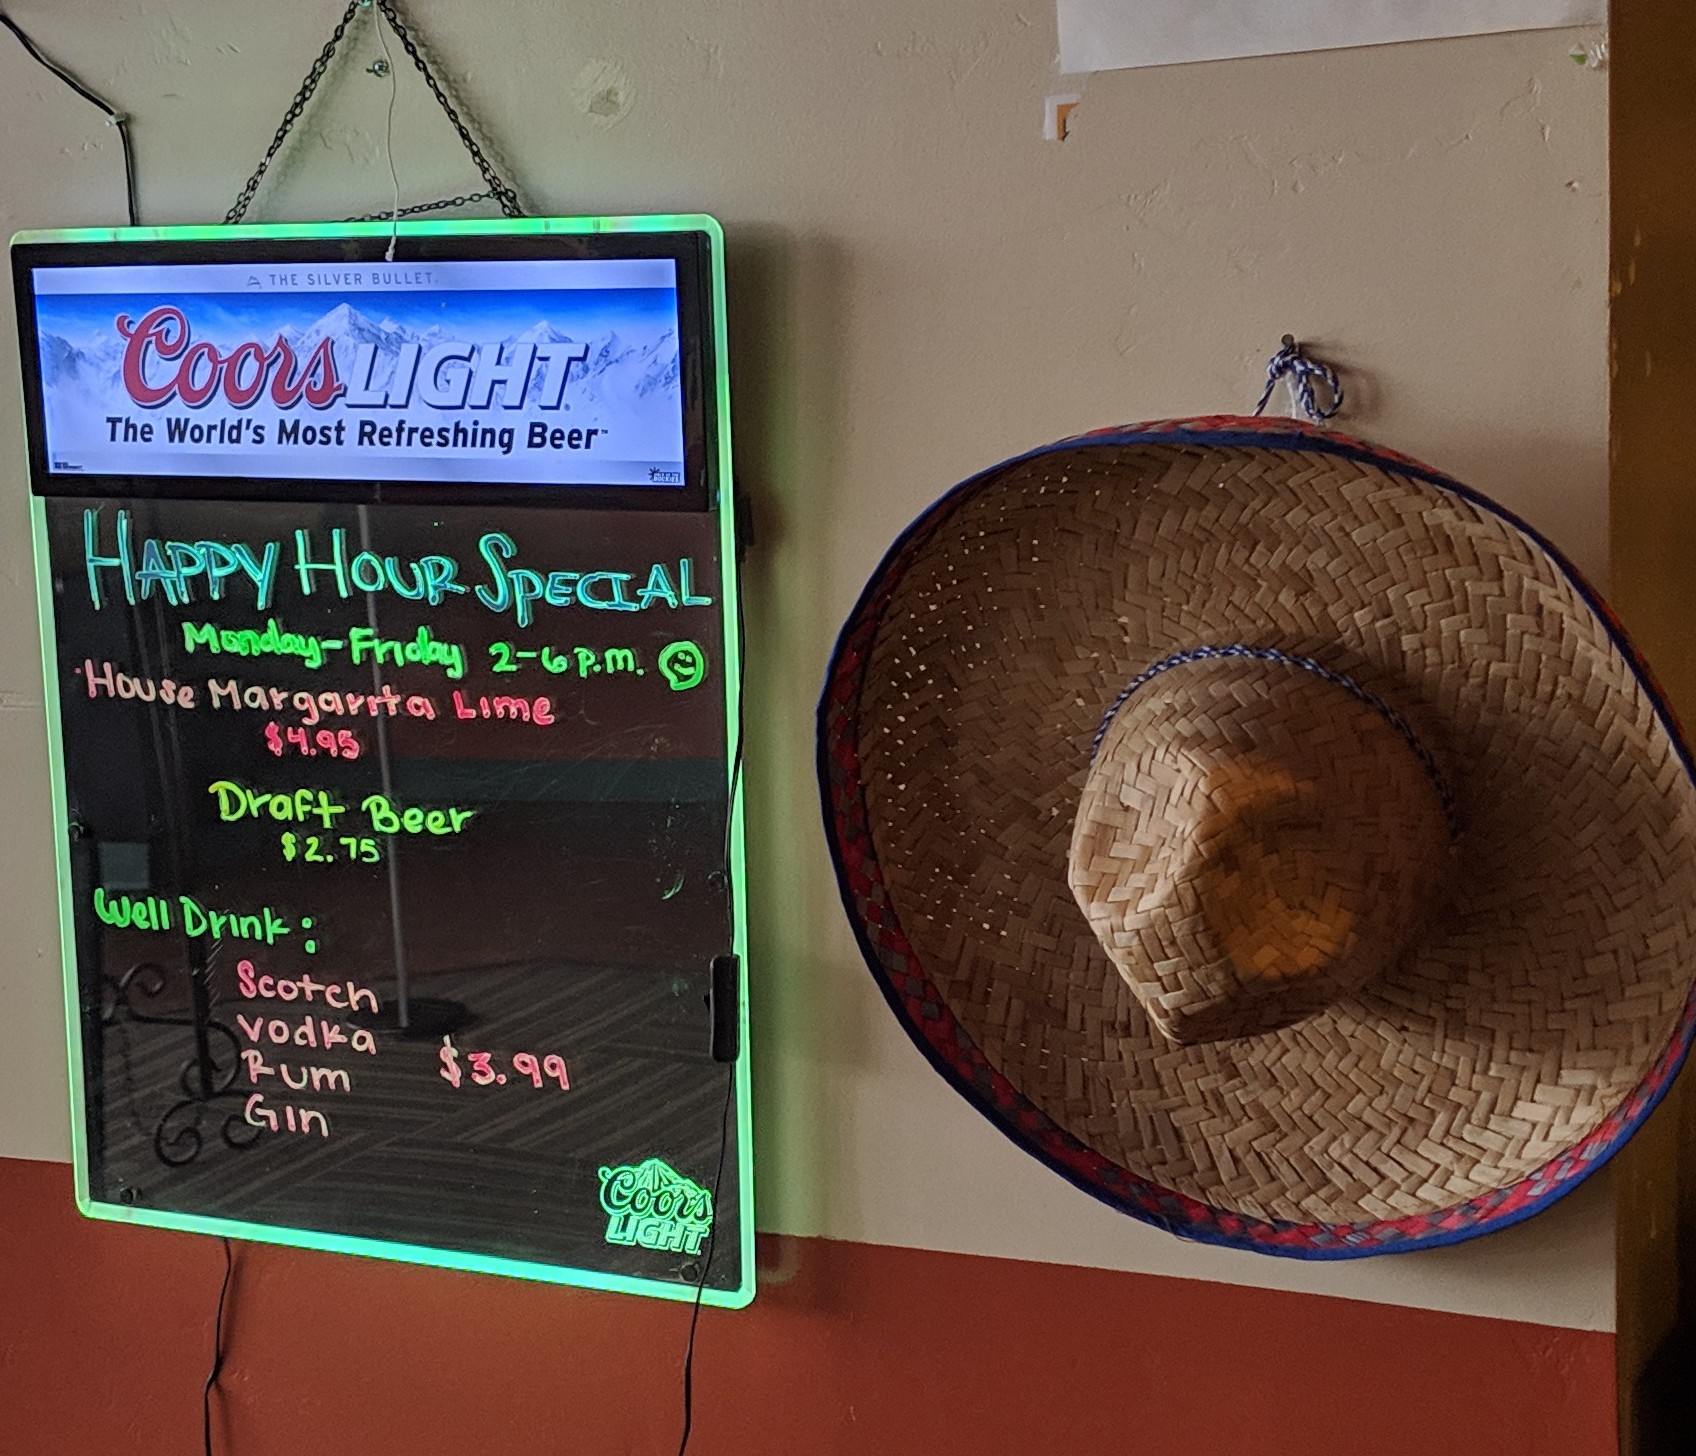 THE SILVER BULLET.
Coors LIGHT
The World's Most Refreshing Beer™
HAPPY HOUR SPECIAL
Monday-Friday 2-6 p.m.
House Margarita Lime
$4.95
Draft Beer
$2.75
Well Drink:
Scotch
Vodka
Rum $3.99
Gin
Coors
LIGHT